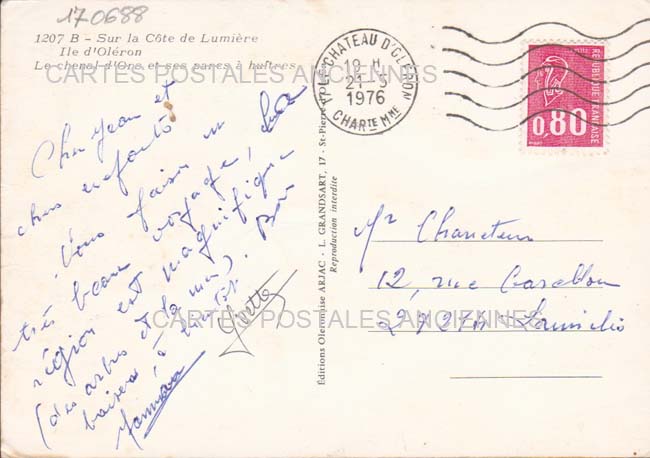 170688
1207 B - Sur la Côte de Lumière
Ile d'Oléron
Le chenal d'Ors et ses parcs à huîtres
CARTES POSTALES ANCIENNES
17 LE CHATEAU D'OLERON
18 H
21-5
1976
CHARTE MME
REPUBLIQUE FRANÇAISE
0,80
Cher Jean et
chers enfants
Nous faisons un
très beau voyage, la
région est magnifique
(des arbres et la mer). Bons
baisers à bientôt.
Maman
Éditions Oleronnaise ARJAC - L. GRANDSART, 17 - St-Pierre
Reproduction interdite
Mr
12, rue
CARTES POSTALES ANCIENNES